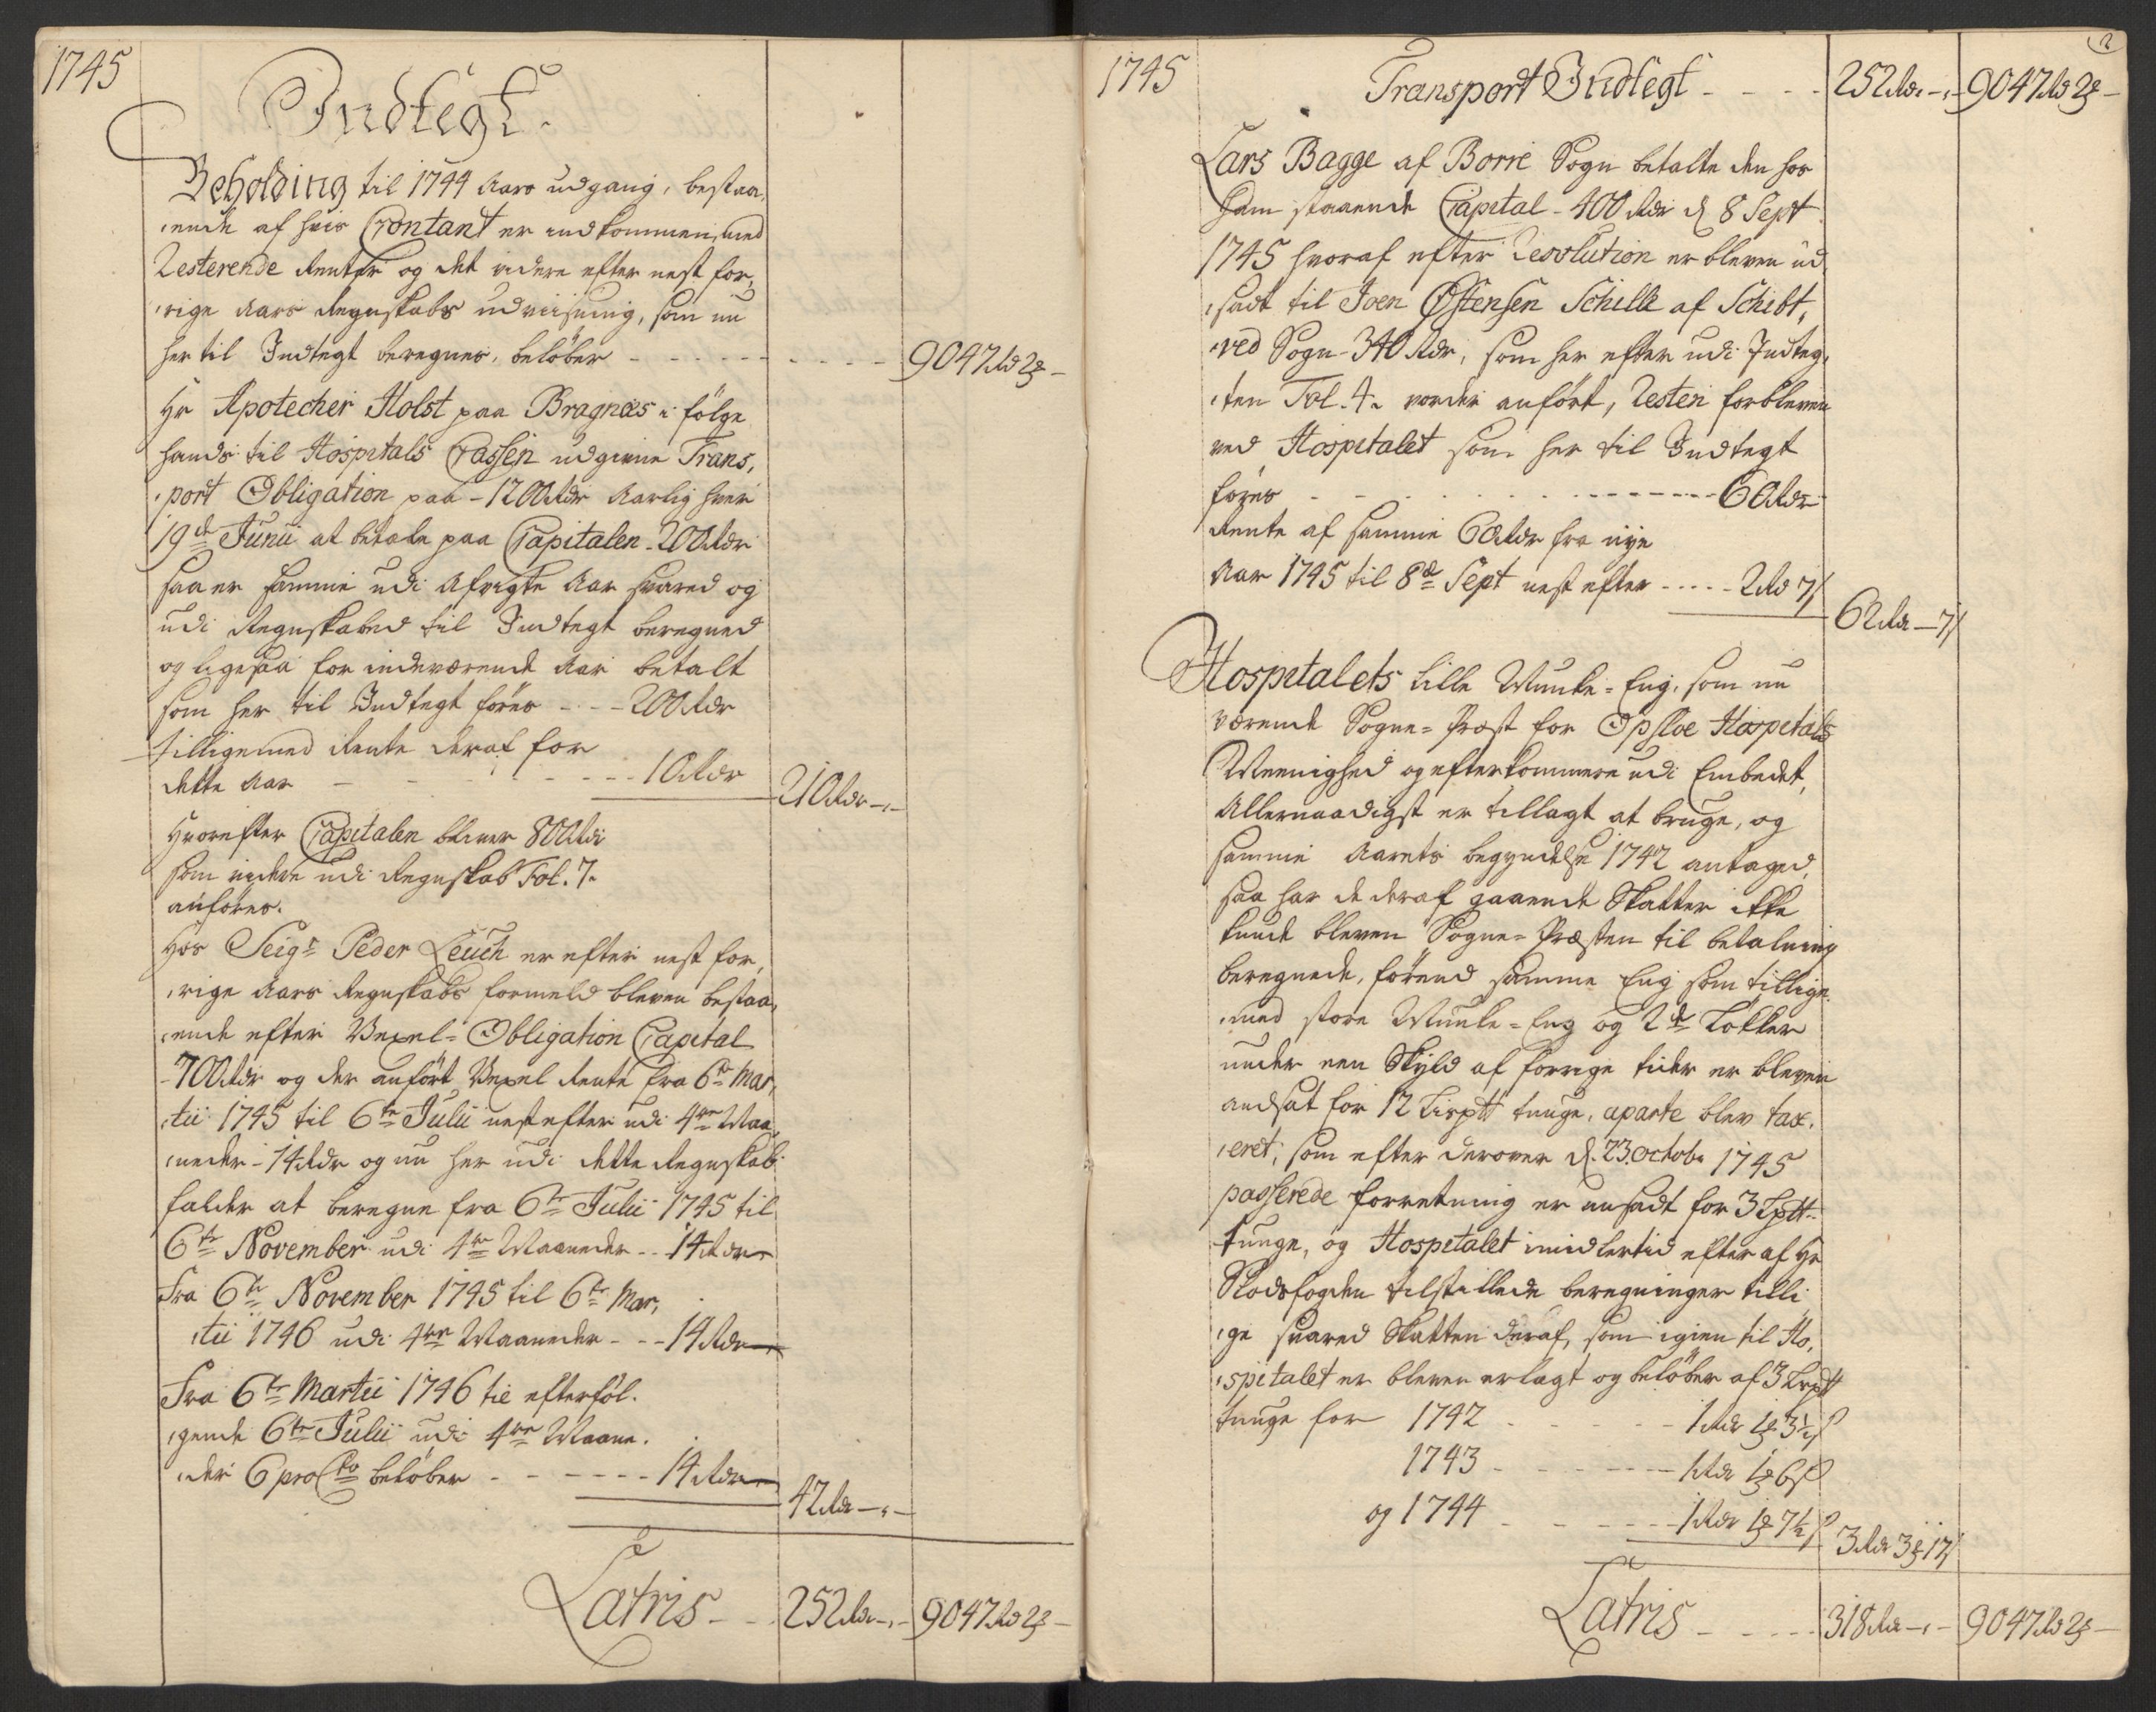 1745
Indtegt.
Beholding til 1744 Aars udgang, bestaa,
,ende af hvis Contant er indkommen, med
Resterende Renter og det videre efter nest for,
,rige Aars Regnskabs udviisning, som nu
her til Indtegt beregnes, beløber - - - - - 9047 Rd 2 ꝥ -
Hr Apotecher Holst paa Bragnæs i følge
hands til Hospitals Cassen udgivne Trans,
,port Obligation paa - 1200 Rdr Aarlig hver
19de Junii at betale paa Capitalen - 200 Rdr
saa er samme udi Afvigte Aar svared og
udi Regnskabed til Indtegt beregned
og ligesaa for indeværende Aar betalt
som her til Indtegt føres - - - 200 Rdr
tilligemed Rente deraf for
dette Aar - - - - - 10 Rdr 210 Rdr -,-
Hvorefter Capitalen bliver 800 Rdr
som videre udi Regnskab Fol. 7.
anføres.
Hos Seigr Peder Leuch er efter nest for,
,rige Aars Regnskabs formeld bleven bestaa,
,ende efter Vexel-Obligation Capital
- 700 Rdr og der anført Vexel Rente fra 6te Mar,
,tii 1745 til 6te Julii nest efter udi 4re Maa,
,neder - 14 Rdr og nu her udi dette Regnskab
falder at beregne fra 6te Julii 1745 til
6te November udi 4re Maaneder - - 14 Rdr
Fra 6te November 1745 til 6te Mar,
,tii 1746 udi 4re Maaneder - - - 14 Rdr
Fra 6te Martii 1746 til efterføl.
,gende 6te Julii udi 4re Maane.
,der 6 pro Cto beløber - - - - - 14 Rdr 42 Rdr -,-
Latris - - 252 Rdr -,- 9047 Rd 2 ꝥ -
2
1745
Transport Indtegt - - - - 252 Rdr -,- 9047 Rd 2 ꝥ -
Lars Bagge af Borre Sogn betalte den hos
ham staaende Capital - 400 Rdr d 8 Sept
1745 hvoraf efter Resolution er bleven ud,
,sadt til Joen Østensen Schille af Schibt,
,ved Sogn - 340 Rdr, som her efter udi Indteg,
,ten Fol. 4. vorder anført, Resten forbleven
ved Hospitalet som her til Indtegt
føres - - - - - - - - 60 Rdr
Rente af samme 60 Rdr fra nye
Aar 1745 til 8de Sept nest efter - - - - - 2 Rd 7 ß 62 Rdr - 7 ß
Hospitalets lille Munke-Eng, som nu
værende Sogne-Præst for Opsloe Hospitals
Meenighed og efterkommere udi Embedet,
Allernaadigst er tillagt at bruge, og
samme Aarets begyndelse 1742 antaged,
saa har de deraf gaaende Skatter ikke
kunde bleven Sogne-Præsten til betalning
beregnede, førend samme Eng som tillige,
,med store Munke-Eng og 2de Løkker
under een Skyld af forrige tider er bleven
andsat for 12 Lisptt tunge, aparte blev tax,
,eret; som efter derover d. 23. Octobr 1745
passerede forretning er ansadt for 3 Lptt
tunge, og Hospitalet imidlertid efter af Hr
Slodsfogden tilstillede beregninger tilli,
,ge svared Skatten deraf, som igien til Ho,
,spitalet er bleven erlagt og beløber af 3 Lisptt
tunge for 1742 - - - - - 1 Rdr 1 ꝥ 3 ½ ß
1743 - - - - - 1 Rdr 1 ꝥ 6 ß
og 1744 - - - - - 1 Rdr 1 ꝥ 7 ½ ß 3 Rdr 3 ꝥ 17 ß
Latris - - - - - 318 Rdr -,- 9047 Rd 2 ꝥ -